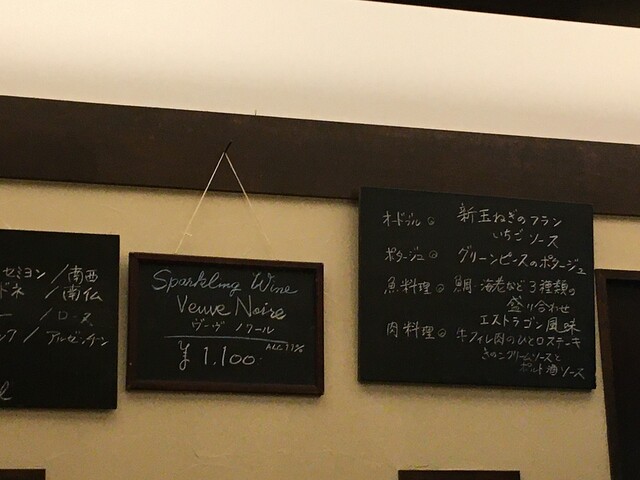 セミヨン/南西
ドネ/南仏
ー/ロース
ック/アルゼンチン
Sparkling Wine
Veuve Noire
ヴーヴ ノワール
¥1,100
オードブル◎ 新玉ねぎのフラン
いちごソース
ポタージュ◎ グリーンピースのポタージュ
魚料理◎ 鯛 海老など3種類の
盛り合わせ
エストラゴン風味
肉料理◎ 牛フィレ肉のひと口ステーキ
きのこクリームソースと
ポルト酒ソース